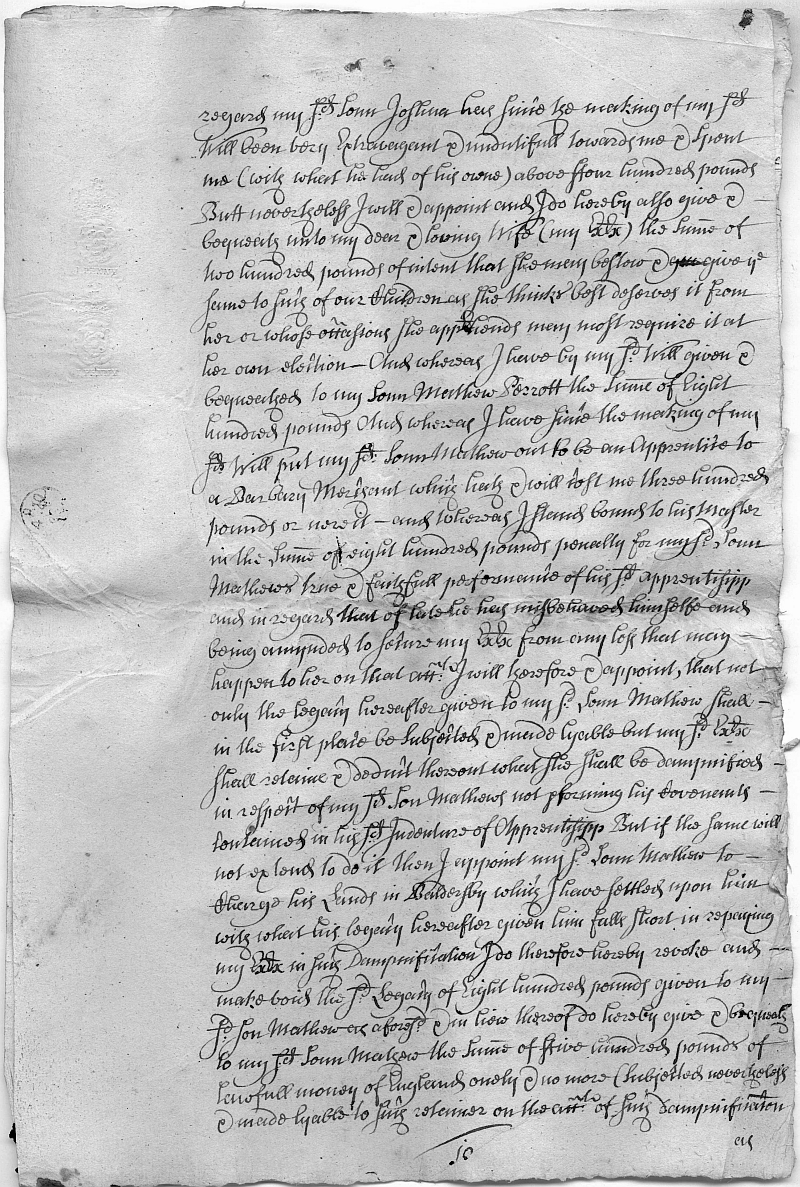 regard my sd. Sonn Joshua has since the making of my sd
Will been very Extravagant & undutifull towards me & Spent
me (with what he had of his owne) above ffour hundred pounds
Butt nevertheless I will & appoint and I do hereby also give &
bequeath unto my dear & loving Wife (my Exix) the Sume of
two hundred pounds of intent that She may bestow & give ye
same to such of our Children as she thinks best deserves it from
her or whose occasions She apprehends may most require it at
her own election – And whereas I have by my sd. Will given &
bequeathed to my Sonn Mathew Perrott the Sume of Eight
hundred pounds And whereas I have since the making of my
sd. Will put my sd. Sonn Mathew out to be an Apprentice to
a Barbary Merchant which hath & will cost me three hundred
pounds or nere it – and whereas I stand bound to his Master
in the Sume of eight hundred pounds penalty for my sd. Sonn
Mathews true & faithfull performance of his sd. apprentishipp
and in regard that of late he has misbehaved himselfe and
being amynded to secure my Exix from any loss that may
happen to her on that acctt. I will therefore & appoint, that not
only the legacy hereafter given to my sd. Sonn Mathew shall –
in the first place be Subjected & made lyable but my sd. Exix
shall retaine & deduct thereout what she shall be dampnified –
in respect of my sd. Son Mathews not pforming his Covenants –
Contained in his sd. Indenture of Apprentishipp But if the same will
not extend to do it then I appoint my sd. Sonn Mathew to –
Charge his Lands in Baldersby which I have settled upon him
with what his legacy hereafter given him falls short in repaying
my Exix in such Dampnification I do therefore hereby revoke and –
make void the sd. Legacy of Eight hundred pounds given to my –
sd. Son Mathew as aforesd. & in liew thereof do hereby give & bequeath
to my sd. Sonn Mathew the Sume of ffive hundred pounds of
lawfull money of England onely & no more (Subjected nevertheless
& made lyable to such retainer on the acctt. of such dampnification
as